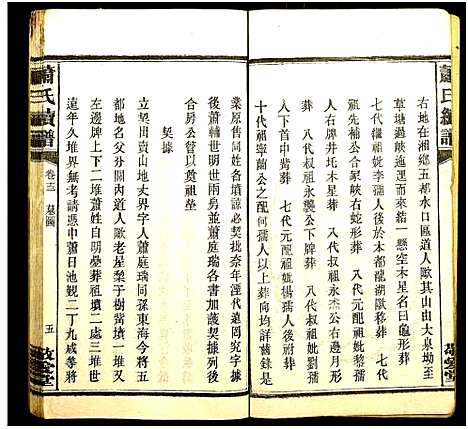 蕭氏續譜
右地在湘鄉五都水口區道人歐其山由大泉坳至
草塘過峽逶迤一線懸空木星名曰龜形葬
七代繼祖妣李孺人葬於本都龍湖歐移葬　七代
祖先補公合冢峽右蛇形葬　八代元配祖妣黎孺
右牌井圫木星葬　八代叔祖永杰公右邊月形
葬　八代叔祖永選公下牌葬　八代叔祖妣劉孺
人下首中背葬　七代元配祖妣楊孺人後祔葬
十代祖寧蘭公之配何孺人以上葬向均詳齒錄是
業原售同姓各墳諒必契批奈年湮代遠罔究字據
後蕭輔世明世兩男並蕭庭瑞各書加該契據歸於
合房公管以奠祖塋
契據
立契出賣山地丈界字人蕭庭瑞同孫東海今將五
都地名父分關內道人歐老星棃于樹嵴墳一堆又
左邊牌上下二堆蕭姓自明㙲葬祖墳二處三堆世
遠年久堆界無考請憑中蕭日池觀二丁九咸孝將
蕭氏續譜
卷十三　墓圖
五
敬愛堂
敬愛堂